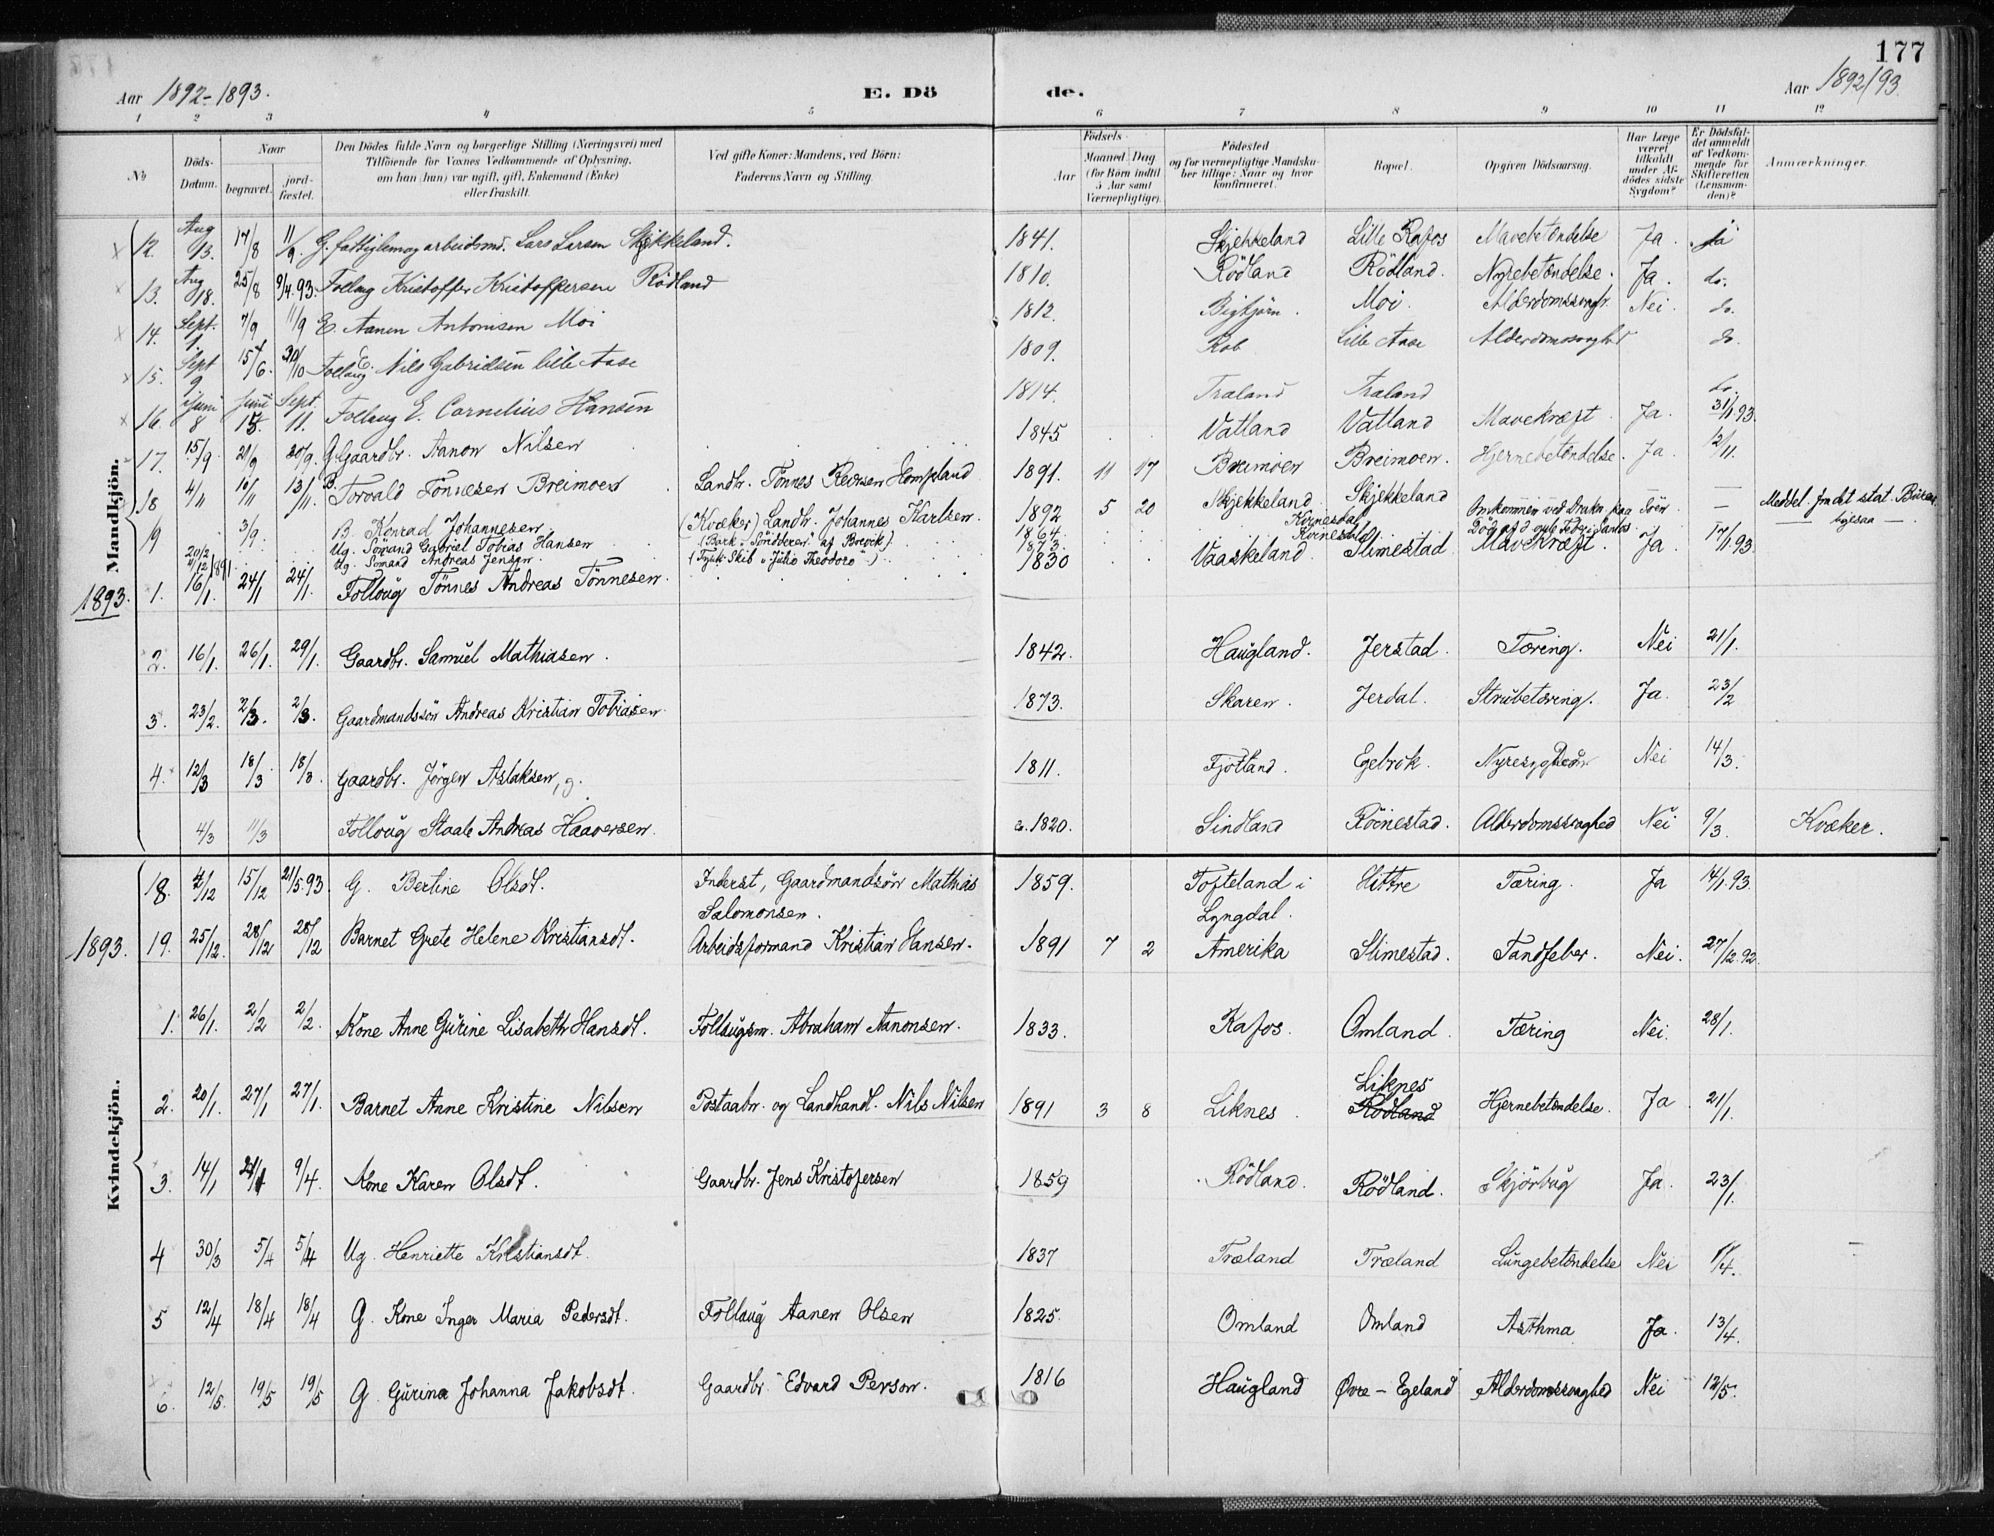 177
Aar 1892-1893. E. Dö de. Aar 1892/93.
1 2 3 4 5 6 7 8 9 10 11 12
No
Döds-Datum.
Naar
begravet.
jord-fæstet.
Den Dödes fulde Navn og borgerlige Stilling (Næringsvei) med
Tilföiende for Voxnes Vedkommende af Oplysning,
om han (hun) var ugift, gift, Enkemand (Enke)
eller fraskilt.
Ved gifte Koner: Mandens, ved Börn:
Faderens Navn og Stilling.
Födsels-
Aar
Maaned Dag
(for Börn indtil
5 Aar samt
Værnepligtige).
Födested
og for værnepligtige Mandska-
ber tillige: Naar og hvor
konfirmeret.
Bopæl.
Opgiven Dödsaarsag.
Har Læge
været
tilkaldt
under Af-
dödes sidste
Sygdom?
Er Dödsfal-
det anmeldt
af Vedkom-
mende for
Skifteretten
(Lensman-
den)?
Anmærkninger.
Mandkjön.
12. Aug 13. 17/8 11/9. G. arbeidsmd. Lars Larsen Skjekkeland. 1841. Skjekkeland Lille Rafos Mavebetændelse Ja. Ja
13. Aug 18. 25/8 9/4.93. Follaug Kristoffer Kristoffersen Rödland 1810. Rödland Rödland. Nyrebetændelse. Ja. do.
14. Sept. 1. 7/9 11/9 E. Aanen Antonisen Moi 1812. Bigkjörn. Moi. Alderdomssvagh. Nei. do.
15. Sept 9 30/10 Follaug E. Nils Gabrielsen lille Aase 1809. Lille Aase Alderdomssvaghed do.
16. Juni 8 Juni 15. Sept. 11. Follaug E. Cornelius Hansen 1814. Træland Træland do.
17. 15/9 21/9 20/9. G. Gaardbr. Aanon Nilsen 1845 Vatland Vatland Mavekræft. Ja. 31/1.93.
18 4/11 10/11 13/11. B. Torvald Tönnesen Breimoen. Landbr. Tönnes Reersen Hompland 1891. 11 17 Breimoen Breimoen. Hjernebetændelse. Ja. 12/11.
19 3/9. B. Konrad Johannesen. (Kvæker) Landbr. Johannes Karlsen. 1892 5 20 Skjekkeland Skjekkeland
20/2 Ug. Sömand Gabriel Tobias Hansen (Bark af Brevik). 1864. Kvinesdal Omkommen ved Druknen paa Söen — Meddel. fra det stat. Büreau
2/12 1891. Ug. Sömand Andreas Jensen. (Tysk Skib "Julio Theodoro") 1873. Kvinesdal Död af d. gule Feber i Santos. — ligesaa —.
1893. 1. 16/1. 24/1 24/1. Follaug Tönnes Andreas Tönnesen. 1830 Vaaskeland Slimestad Mavekræft. Ja. 17/1.93.
2. 16/1. 26/1. 29/1. Gaardbr. Samuel Mathiasen. 1842. Haugland. Jerstad. Tæring. Nei 21/1.
3. 23/2. 2/3. 2/3. Gaardmandssön Andreas Kristian Tobiasen. 1873. Skaren. Jerdal. Strubetæring. Ja. 23/2
4. 12/3 18/3 18/3. Gaardbr. Jörgen Aslaksen, g. 1811. Fjotland. Egebrok. Nyresygdom Nei 14/3.
4/3 11/3 Follaug Staale Andreas Haaversen. c. 1820. Sindland Röinestad. Alderdomssvaghed Nei 9/3. Kvæker.
Kvindekjön.
18. 4/12 15/12 21/5.93. G. Bertine Olsdt. Inderst, Gaardmandsön Mathias 1859. Tofteland i Hittre Tæring. Ja 14/1.93.
Salomonsen. Lyngdal.
1893. 19. 25/12. 28/12 28/12 Barnet Grete Helene Kristiansdt. Arbeidsformand Kristian Hansen. 1891 7 2 Amerika Slimestad. Tandfeber. Nei. 27/12.92.
1. 26/1. 2/2 2/2. Kone Anne Gurine Lisabeth Hansdt. Follaugsm. Abraham Aanonsen. 1833. Rafos. Omland. Tæring Nei. 28/1.
2. 20/1. 27/1 27/1. Barnet Anne Kristine Nilsen Postaabr. og Landhandl. Nils Nilsen 1891 3 8 Liknes. Liknes Rödland Hjernebetændelse. Ja. 21/1.
3. 14/1 24/1 9/4. Kone Karen Olsdt. Gaardbr. Jens Kristofersen 1859 Rödland. Rödland. Skjörbug Ja. 23/1.
4 30/3 5/4 5/4 Ug. Henriette Kristiansdt. 1837 Træland Træland Lungebetændelse Nei
5 12/4 18/4 18/4 G. Kone Inger Maria Pedersdt. Follaug Aanen Olsen 1825. Omland Omland Asthma Ja. 13/4.
6. 12/5. 19/5 19/5 G Gurina Johanna Jakobsdt. Gaardbr. Edvard Person. 1816 Haugland Øvre - Egeland Alderdomssvaghed Nei 12/5.